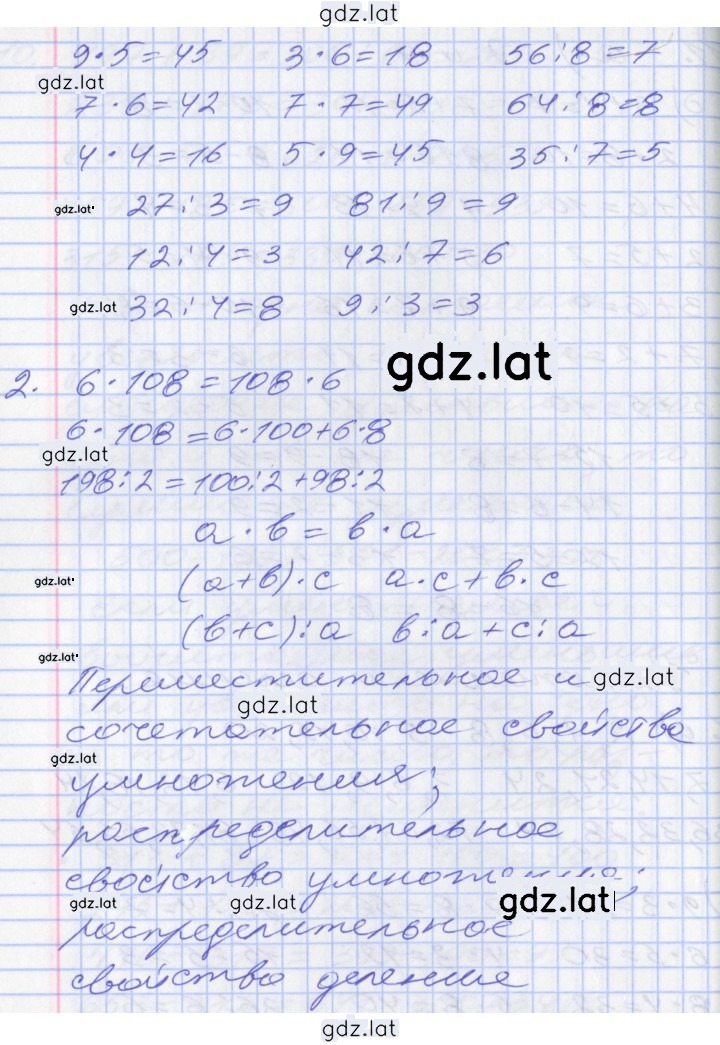 gdz.lat
9·5=45 3·6=18 56:8=7
gdz.lat
7·6=42 7·7=49 64:8=8
4·4=16 5·9=45 35:7=5
gdz.lat 27:3=9 81:9=9
12:4=3 42:7=6
gdz.lat 32:4=8 9:3=3
gdz.lat
2. 6·108=108·6
6·108=6·100+6·8
gdz.lat
198:2=100:2+98:2
а·в=в·а
gdz.lat (а+в)·с а·с+в·с
(в+с):а в:а+с:а
gdz.lat
Переместительное и gdz.lat
gdz.lat
сочетательное свойства
gdz.lat
умножения;
распределительное
свойство умножения;
gdz.lat gdz.lat gdz.lat
распределительное
свойство деление
gdz.lat